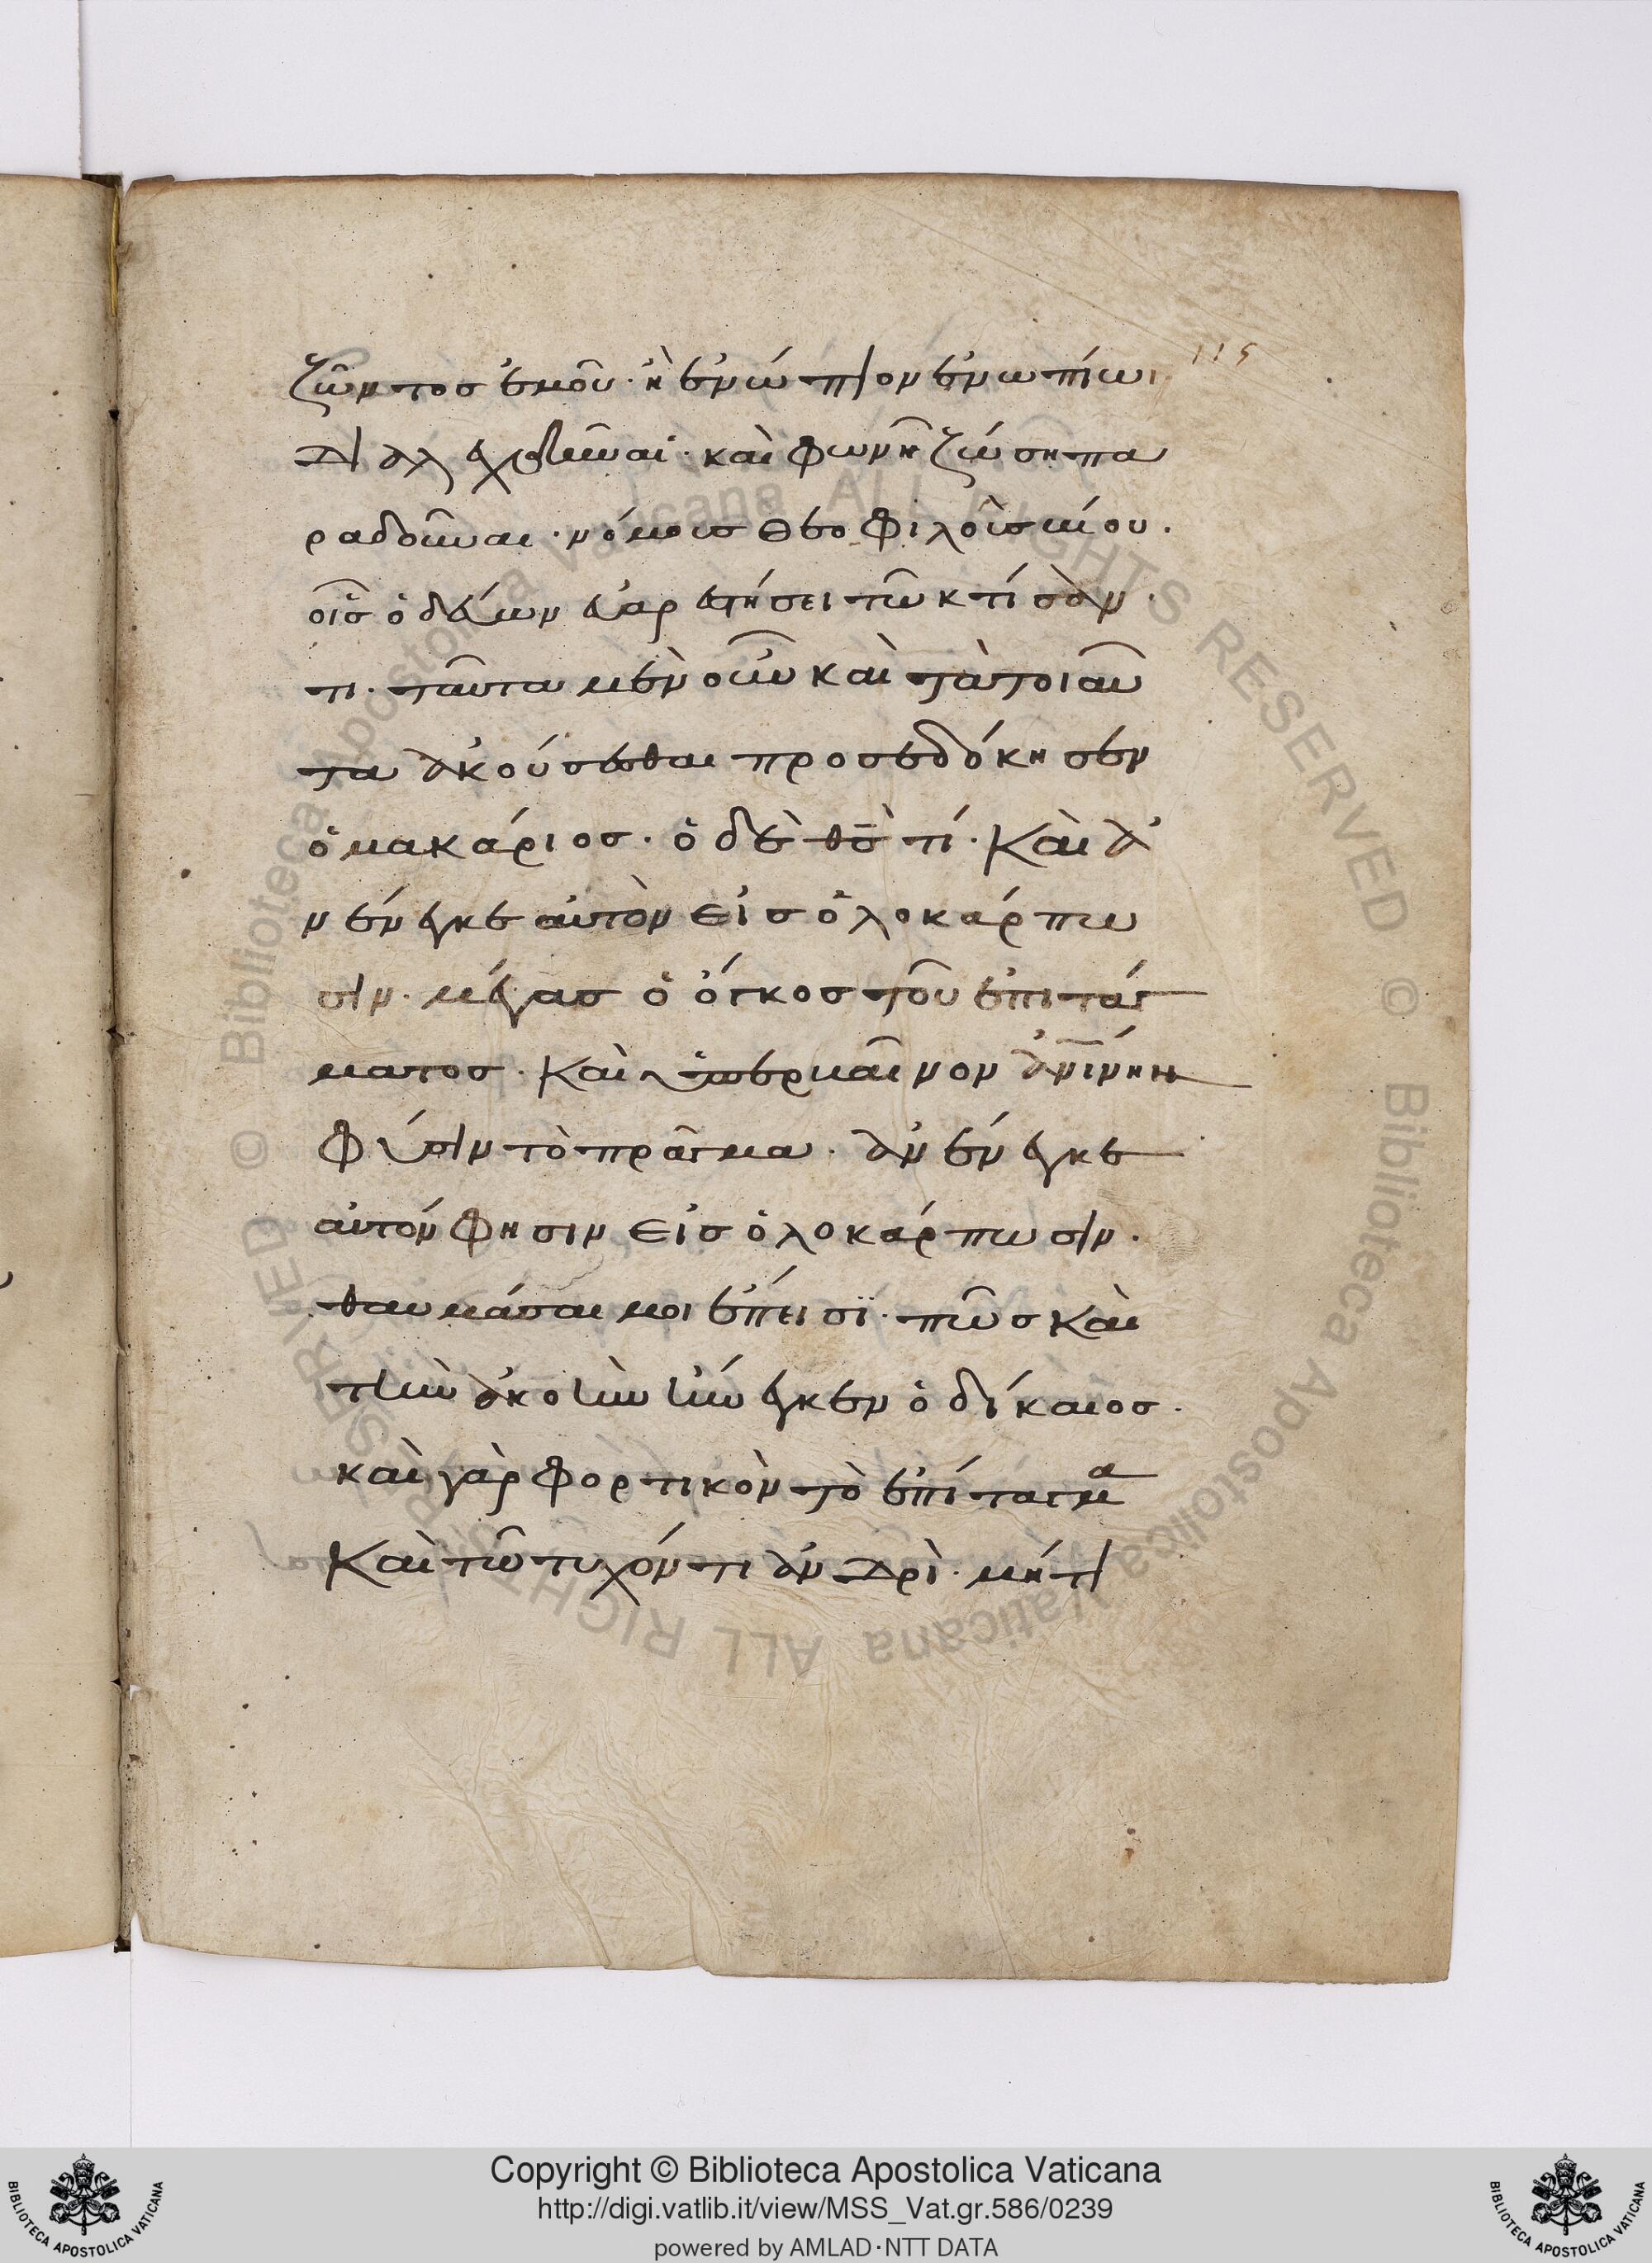 115
ζῶντος ἐμοῦ· ἢ ἐνώπιον ἐνωπίωι
διαλεχθῆναι· καὶ φωνῆ ζώση πα
ραδοῦναι· νόμοις θεοφιλοῦς βίου.
οἷς ὁ δαίμων εὐαρεστήσει τῶ κτίσαν
τι· ταῦτα μὲν οὖν καὶ τὰ τοιαῦ
τα ἀκούσεσθαι προσεδόκησεν
ὁ μακάριος. ὁ δὲ θς̅ τί· Καὶ ἀ
νένεγκε αὐτὸν εἰς ὁλοκάρπω
σιν· μέγας ὁ ὄγκος τοῦ ἐπιτάγ
ματος. Καὶ ὑπερβαῖνον ἀνίνην
φύσιν τὸ πρᾶγμα. ἀνένεγκε
αὐτόν φησιν εἰς ὁλοκάρπωσιν.
θαυμάσαι μοι ἔπεισι· πῶς καὶ
τὴν ἀκοὴν ἤνεγκεν ὁ δίκαιος.
καὶ γὰρ φορτικὸν τὸ ἐπίταγμα
Καὶ τῶ τυχόντι ἀνδρὶ· μήτι
Copyright © Biblioteca Apostolica Vaticana
http://digi.vatlib.it/view/MSS_Vat.gr.586/0239
powered by AMLAD·NTT DATA
BIBLIOTECA APOSTOLICA VATICANA
BIBLIOTECA APOSTOLICA VATICANA
© Biblioteca Apostolica Vaticana ALL RIGHTS RESERVED © Biblioteca Apostolica Vaticana ALL RIGHTS RESERVED